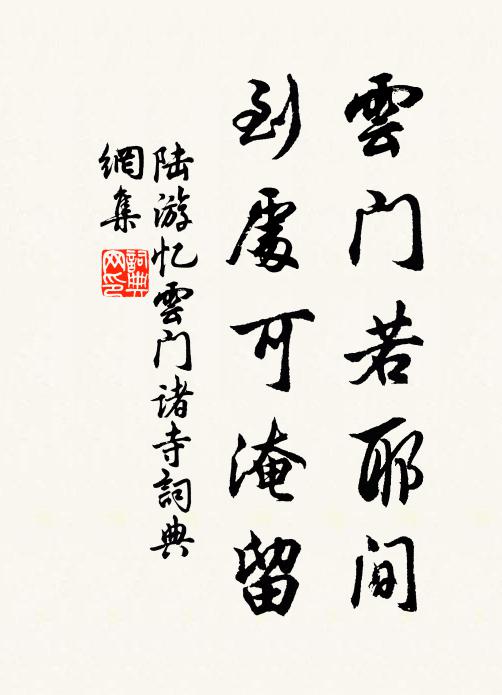 雲门若耶间
到處可淹留
陆游忆雲门诸寺詞典
網集
詞典
网印